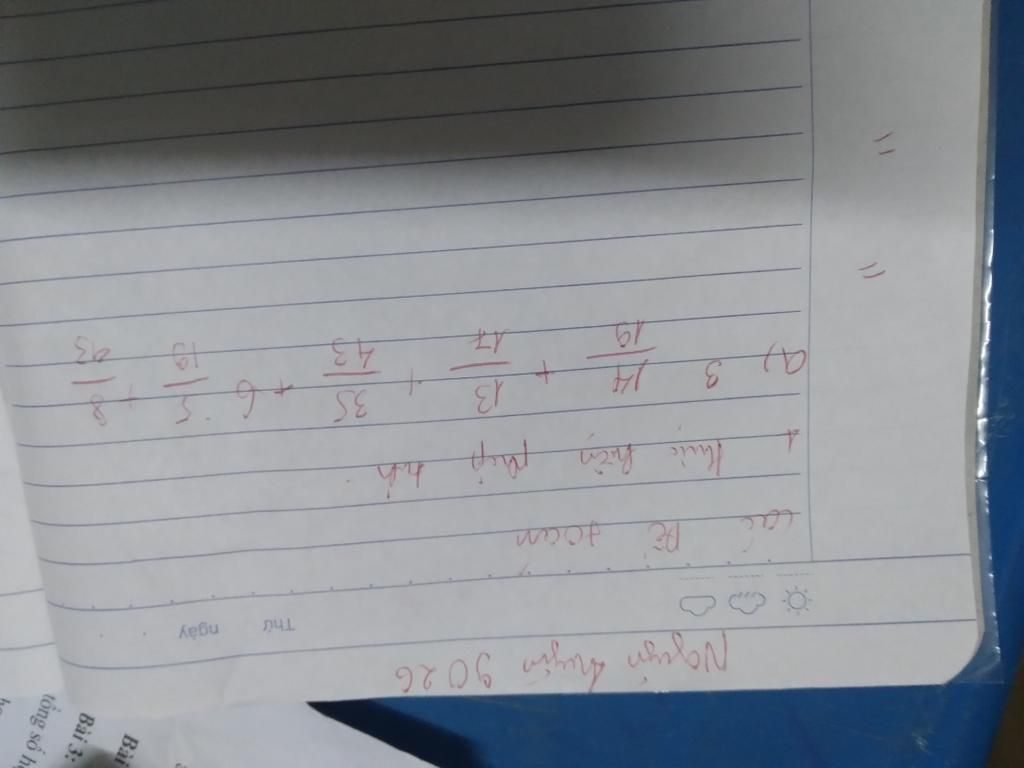 Nguyễn huyền 9026
Thứ ngày
cái Đề toán
1 thực hiện phép tính
a) 3 14/19 + 13/17 + 35/43 + 6 5/19 + 8/43
=
=
Bài
Bài 3:
tổng số h